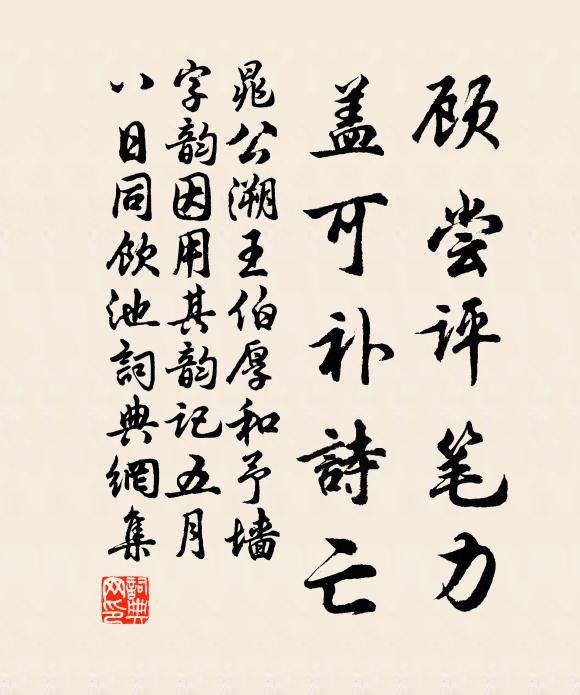 顾尝评笔力
盖可补詩亡
晁公溯王伯厚和予墙
字韵因用其韵记五月
八日同饮池詞典網集
詞典
网印